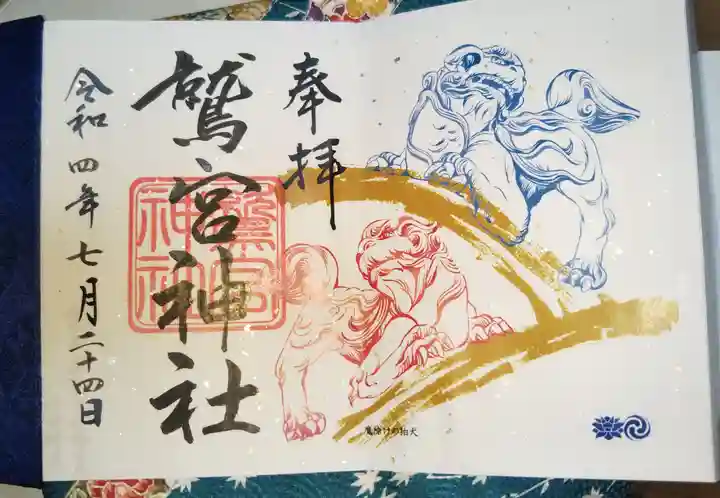 奉拝
鷲宮神社
鷲宮
神社
令和四年七月二十四日
魔除けの狛犬